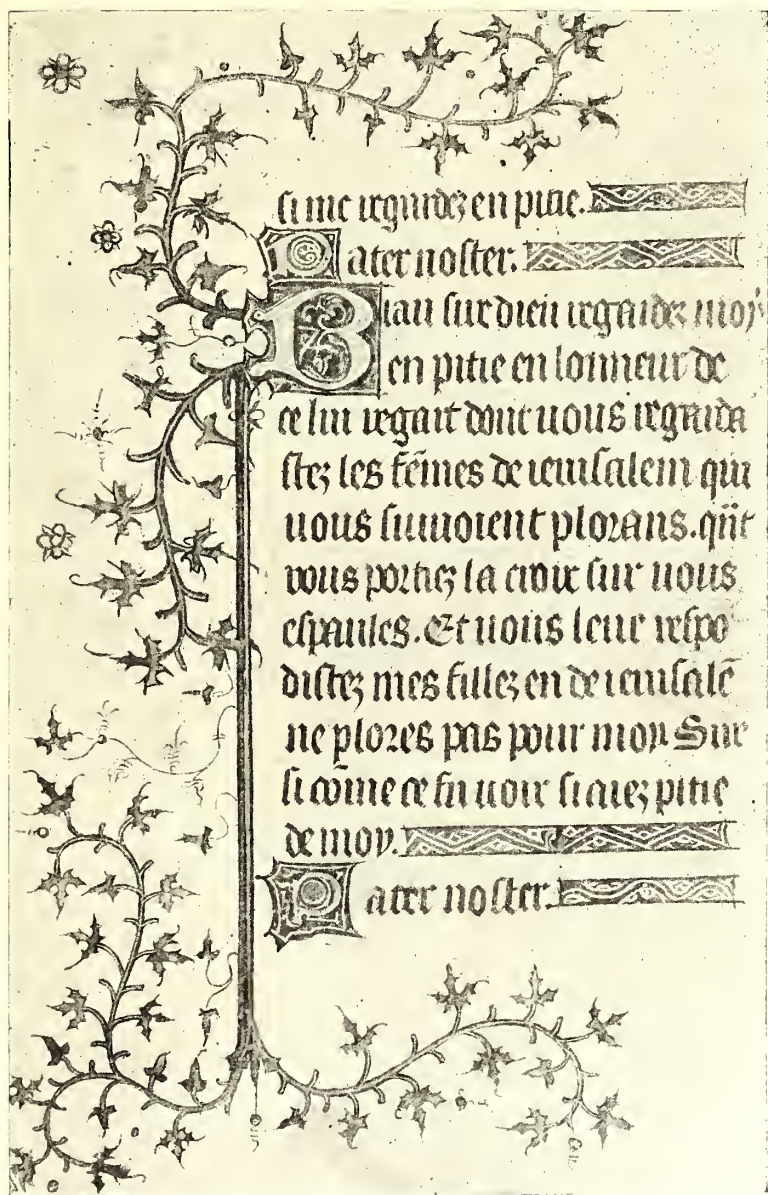 si me regardez en pitie.
Pater noster.
Biau sire dieu regardez moy
en pitie en lonneur de
ce lui regart dont uous regarda
stez les fẽmes de ierusalem qui
uous suiuoient plorans. qñt
vous portiez la croix sur uous
espaules. Et uous leur respõ
distez mes fillez en de ierusalẽ
ne plores pas pour moy. Sire
si cõme ce fu uoir si aiez pitie
de moy.
Pater noster.